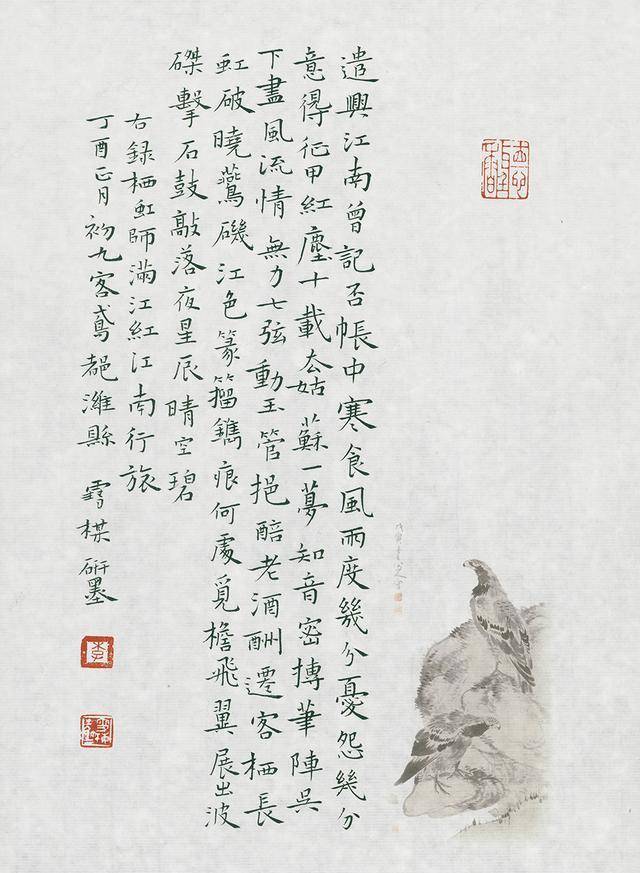 遣興江南曾記否帳中寒食風雨度幾分憂怨幾分
意得征甲紅塵十載厺姑蘇一夢知音密摶筆陣吳
下盡風流情無力七弦動玉管挹醅老酒酬遷客栖長
虹破曉鷰磯江色篆籀鐫痕何處覓檐飛翼展出波
磔擊石鼓敲落夜星辰晴空碧
右録栖虹師滿江紅江南行旅
丁酉正月初九客鳶都濰縣 雩楳研墨